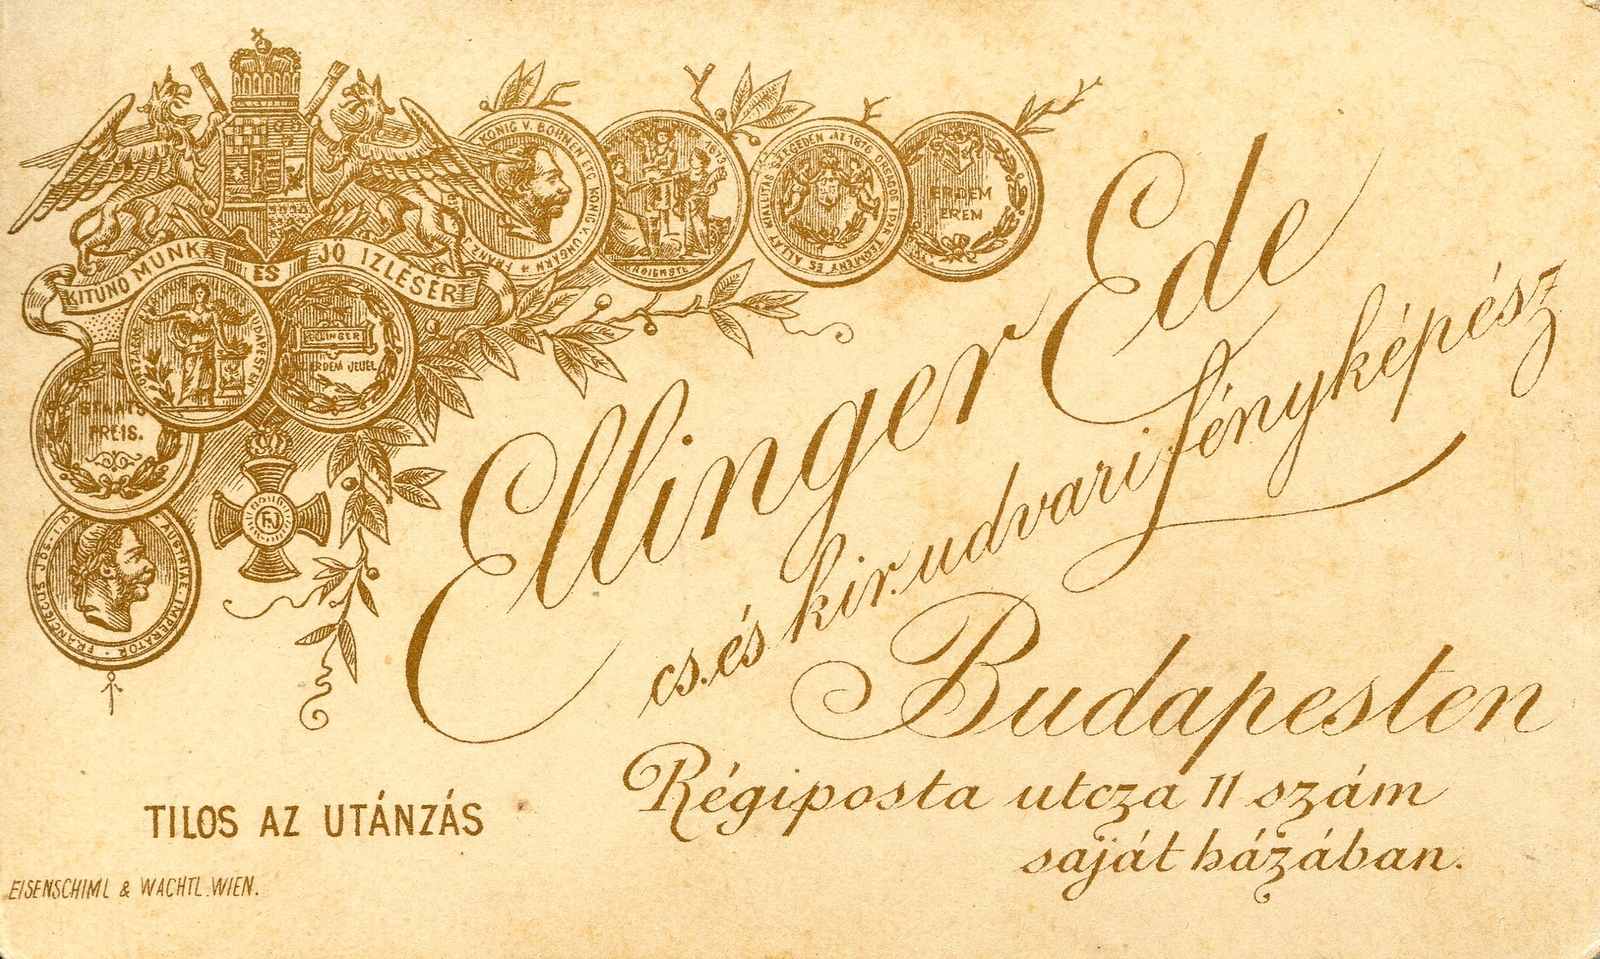 KÖNIG V. BÖHMEN ETC. KÖNIG V. UNGARN * FRANZ
1873
SZEGEDEN AZ 1876 ORSZÁGOS IPAR TERMÉNY ÉS ÁLLAT KIÁLLITÁS
ÉRDEM
ÉREM
KITÜNŐ MUNKA ÉS JÓ IZLÉSÉRT
BUDAPESTEN
ELLINGER
ÉRDEM JELÜL
STAATS
PREIS.
FJ
FRANCISCUS JOS. I. D. AUSTRIAE IMPERATOR
Ellinger Ede
cs. és kir. udvari fényképész
Budapesten
Régiposta utcza 11 szám
saját házában.
TILOS AZ UTÁNZÁS
EISENSCHIML & WACHTL. WIEN.